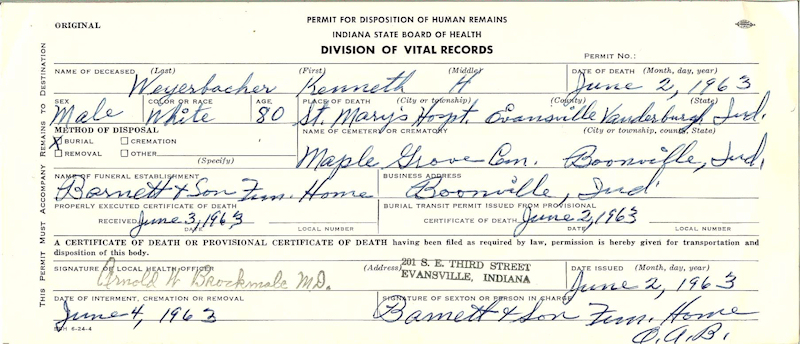 ORIGINAL
PERMIT FOR DISPOSITION OF HUMAN REMAINS
INDIANA STATE BOARD OF HEALTH
DIVISION OF VITAL RECORDS
PERMIT NO.:
THIS PERMIT MUST ACCOMPANY REMAINS TO DESTINATION
NAME OF DECEASED (Last) (First) (Middle) DATE OF DEATH (Month, day, year)
Weyerbacher Kenneth H June 2, 1963
SEX COLOR OR RACE AGE PLACE OF DEATH (City or township) (County) (State)
Male White 80 St. Mary's Hospt. Evansville Vanderburgh Ind.
METHOD OF DISPOSAL NAME OF CEMETERY OR CREMATORY (City or township, county, State)
X BURIAL CREMATION
REMOVAL OTHER
(Specify)
Maple Grove Cem. Boonville, Ind.
NAME OF FUNERAL ESTABLISHMENT BUSINESS ADDRESS
Barnett & Son Fun. Home Boonville, Ind
PROPERLY EXECUTED CERTIFICATE OF DEATH BURIAL TRANSIT PERMIT ISSUED FROM PROVISIONAL
RECEIVED June 3, 1963 CERTIFICATE OF DEATH. June 2, 1963
DATE LOCAL NUMBER DATE LOCAL NUMBER
A CERTIFICATE OF DEATH OR PROVISIONAL CERTIFICATE OF DEATH having been filed as required by law, permission is hereby given for transportation and
disposition of this body.
SIGNATURE OF LOCAL HEALTH OFFICER (Address) 201 S. E. THIRD STREET DATE ISSUED (Month, day, year)
EVANSVILLE, INDIANA
Arnold W Brockmole M.D. June 2, 1963
DATE OF INTERMENT, CREMATION OR REMOVAL SIGNATURE OF SEXTON OR PERSON IN CHARGE
June 4, 1963 Barnett & Son Fun. Home
O.A.B.
6-24-4